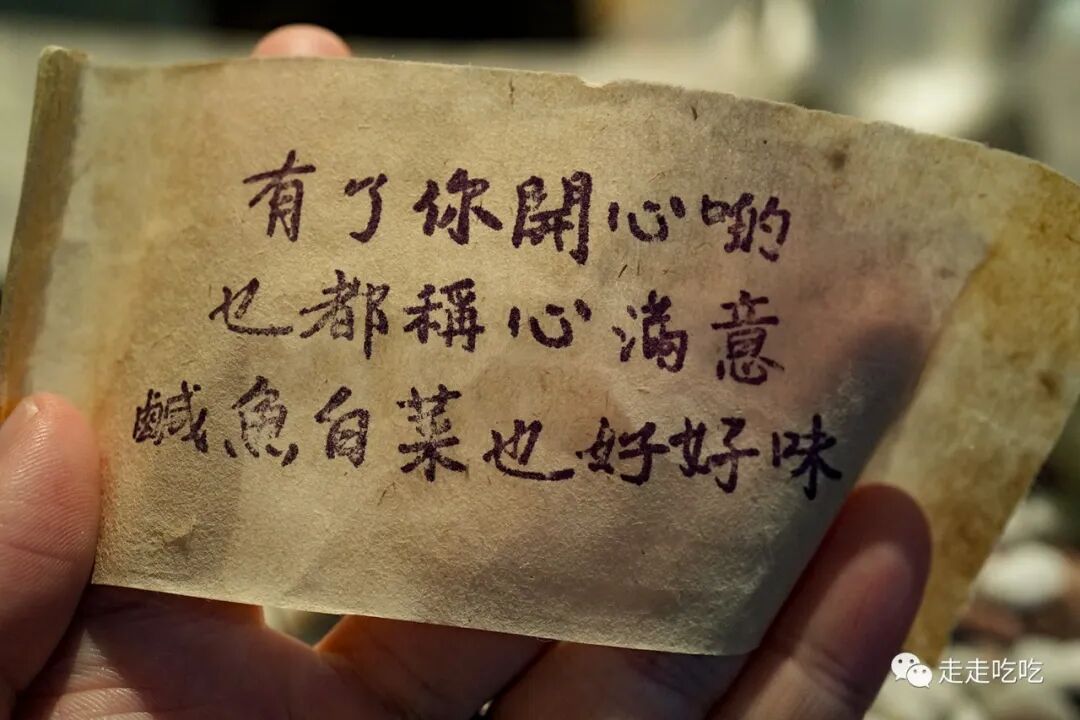 有了你開心啲
也都稱心滿意
鹹魚白菜也好好味
走走吃吃